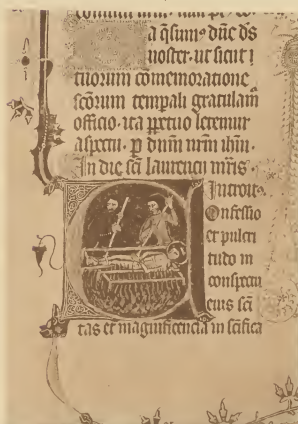 a q̄sum⁹ dn̄e ds̄
noster. ut sicut
tuorum cōmemoratione
sc̄orum tempali gratulam̄
officio. ita ꝑpetuo letemur
aspectu. ꝑ dnm̄ nrm̄ ihm̄.
In die sc̄i laurencij mr̄is.
Introit⁹
Onfessio
et pulcri
tudo in
conspectu
eius sc̄i
tas et magnificencia in sc̄ifica